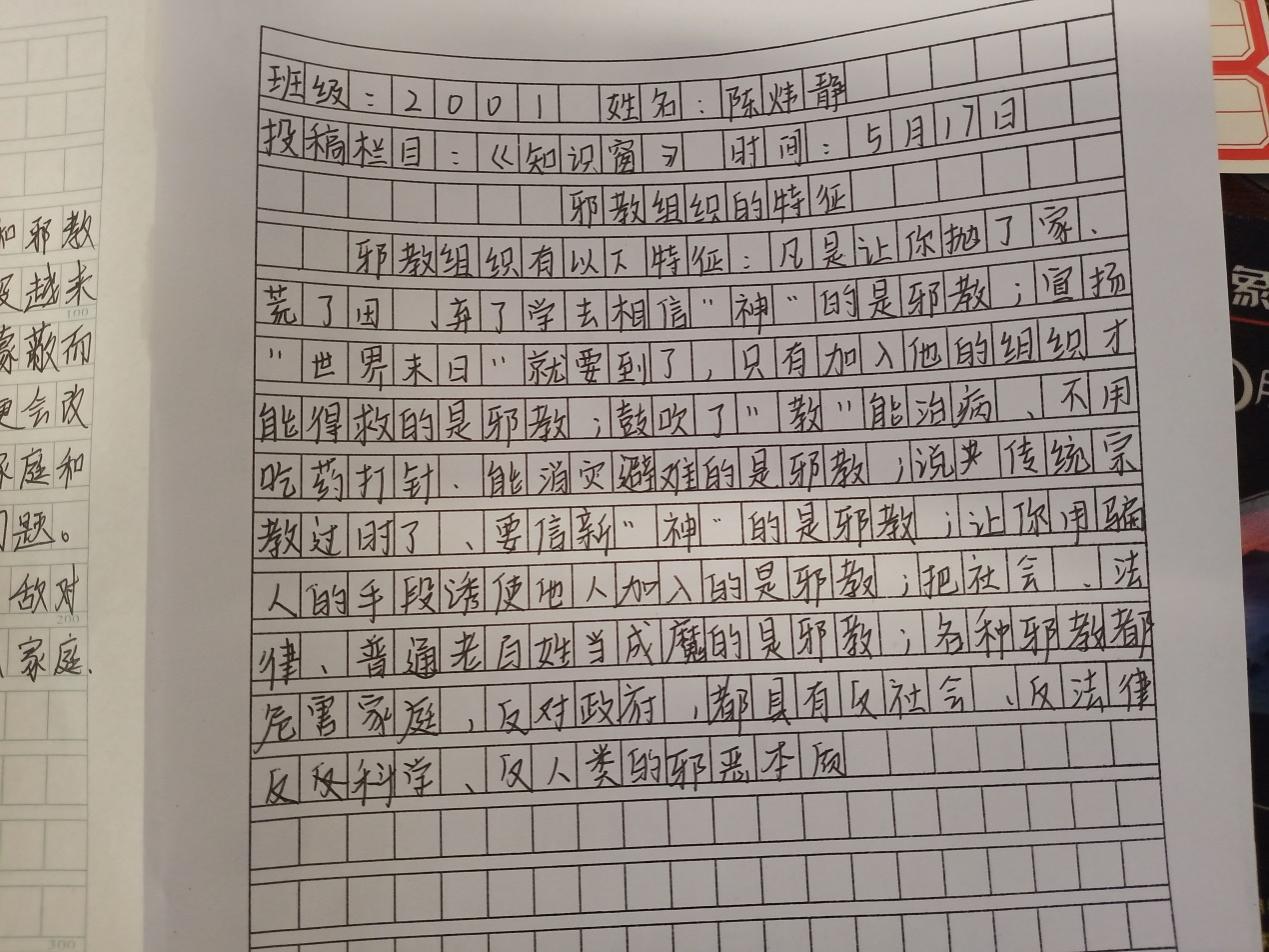 和邪教
越来
100
蒙蔽而
更会改
家庭和
问题。
敌对
200
家庭.
300
班级：2001 姓名：陈炜静
投稿栏目：《知识窗》 时间：5月17日
邪教组织的特征
邪教组织有以下特征：凡是让你抛了家、
荒了田、弃了学去相信"神"的是邪教；宣扬
"世界末日"就要到了，只有加入他的组织才
能得救的是邪教；鼓吹了"教"能治病、不用
吃药打针、能消灾避难的是邪教；说  传统宗
教过时了、要信新"神"的是邪教；让你用骗
人的手段诱使他人加入的是邪教；把社会、法
律、普通老百姓当成魔的是邪教；各种邪教都
危害家庭，反对政府，都具有反社会、反法律
反反科学、反人类的邪恶本质
象